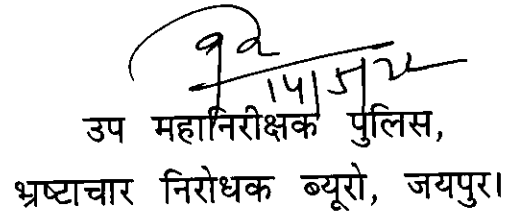 उप महानिरीक्षक पुलिस,
भ्रष्टाचार निरोधक ब्यूरो, जयपुर।